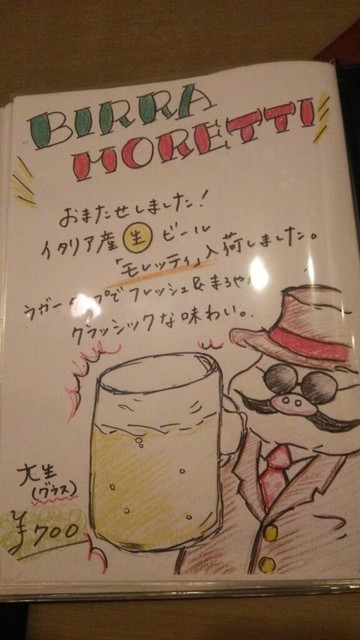 BIRRA
MORETTI
おまたせしました!
イタリア産 生 ビール
「モレッティ」入荷しました。
フレッシュ&まろやか
クラッシックな味わい。
大生
(グラス)
¥700